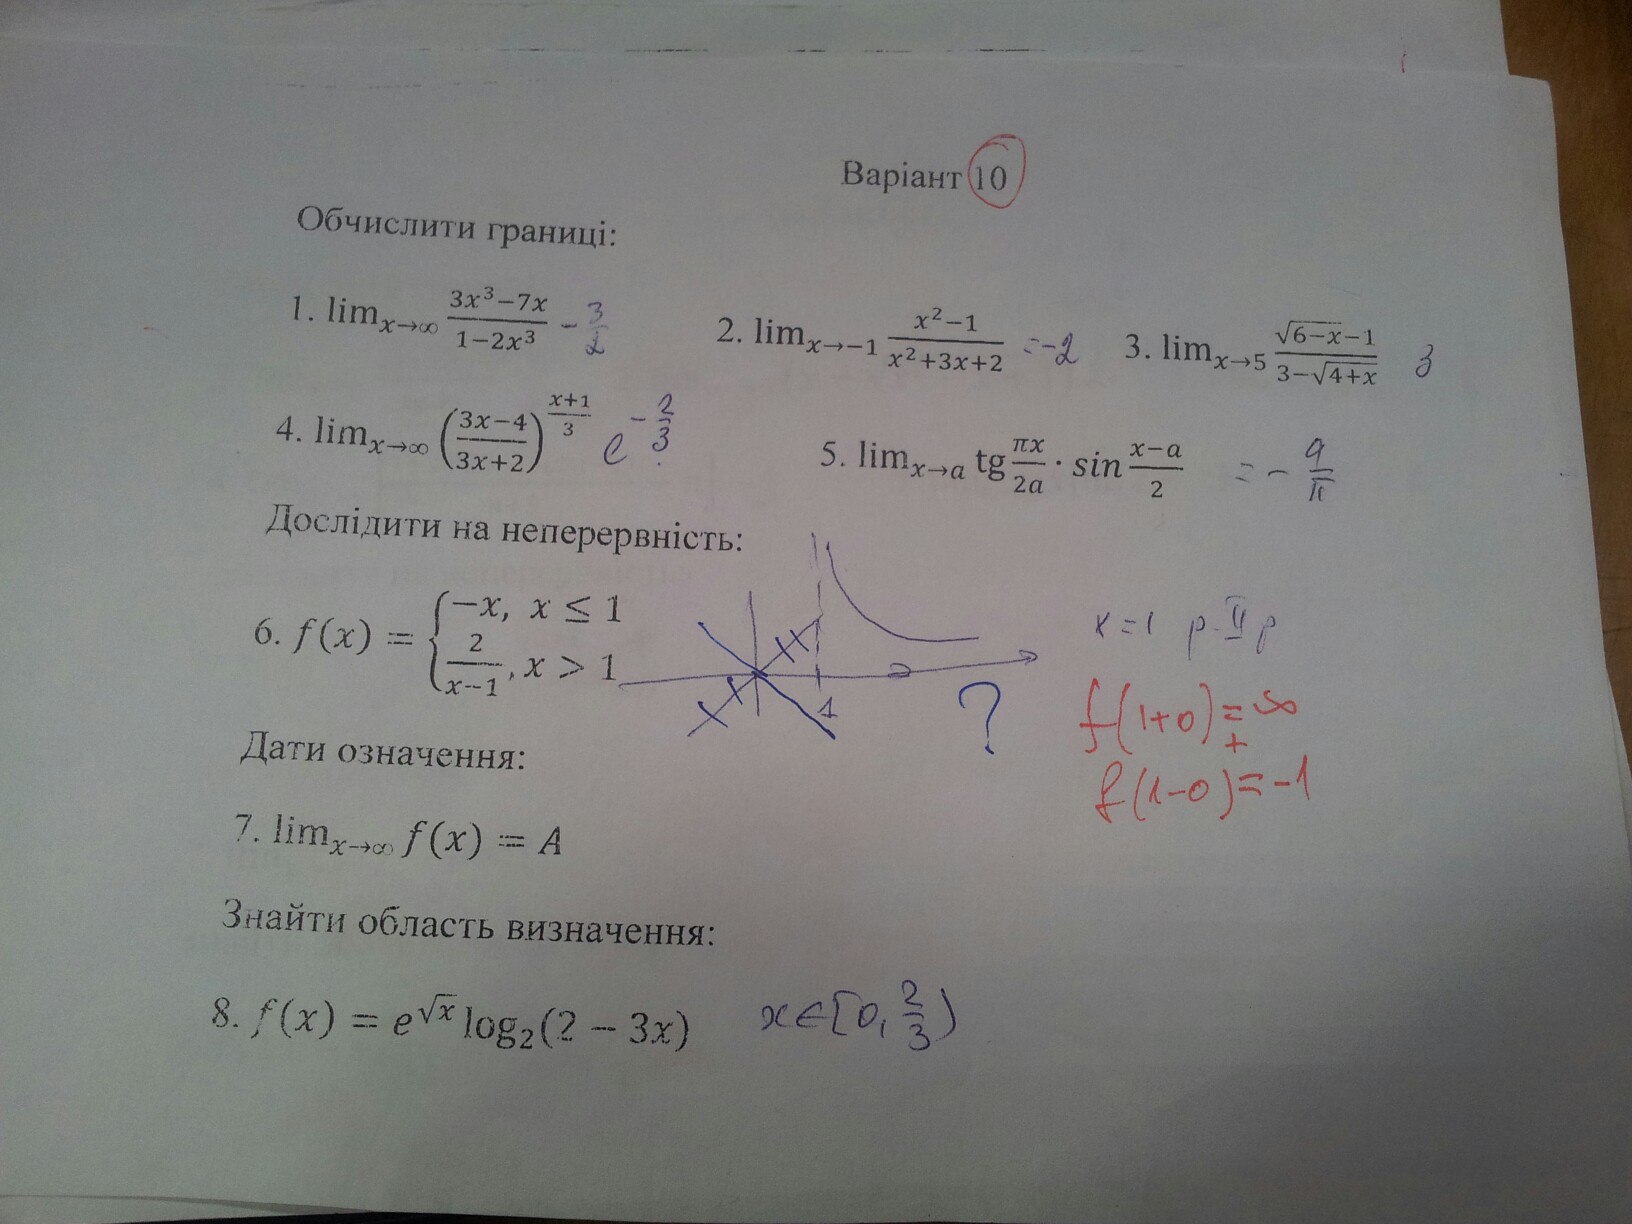 Варіант 10
Обчислити границі:
1. lim_{x→∞} \frac{3x^3−7x}{1−2x^3} − \frac{3}{2}
2. lim_{x→−1} \frac{x^2−1}{x^2+3x+2} = −2
3. lim_{x→5} \frac{\sqrt{6−x}−1}{3−\sqrt{4+x}} 3
4. lim_{x→∞} (\frac{3x−4}{3x+2})^{\frac{x+1}{3}} e^{−\frac{2}{3}}
5. lim_{x→a} tg\frac{πx}{2a} · sin\frac{x−a}{2} = − \frac{a}{π}
Дослідити на неперервність:
6. f(x) = { −x, x ≤ 1
\frac{2}{x−1}, x > 1
1
?
x = 1 р. II р
f(1+0) = +∞
f(1−0) = −1
Дати означення:
7. lim_{x→∞} f(x) = A
Знайти область визначення:
8. f(x) = e^{\sqrt{x}} log_2(2 − 3x) x∈[0, \frac{2}{3})